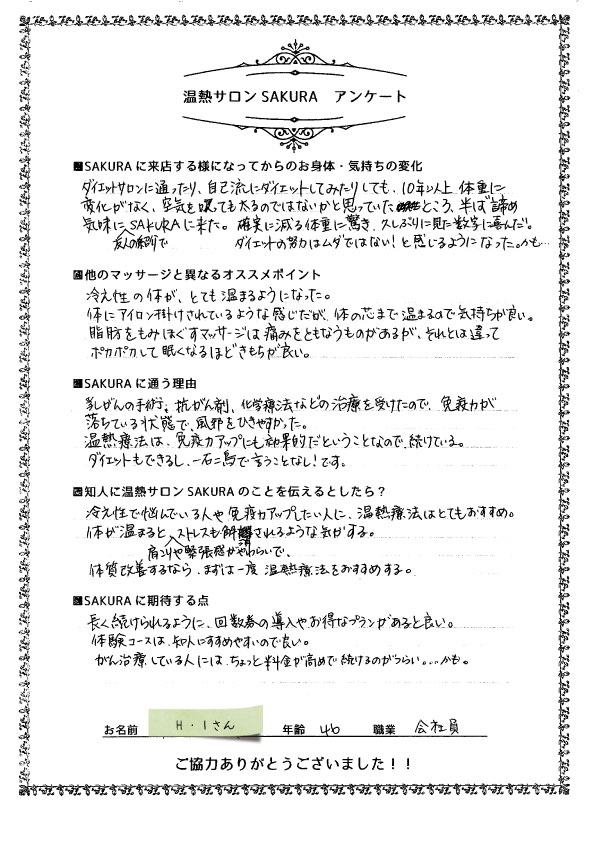 温熱サロンSAKURA アンケート
■SAKURAに来店する様になってからのお身体・気持ちの変化
ダイエットサロンに通ったり、自己流にダイエットしてみたりしても、10年以上 体重に
変化がなく、空気を吸っても太るのではないかと思っていたところ、半ば諦め
気味にSAKURAに来た。確実に減る体重に驚き、久しぶりに見た数字に喜んだ。
友人の紹介で
ダイエットの努力はムダではない!と感じるようになった。かも…
■他のマッサージと異なるオススメポイント
冷え性の体が、とても温まるようになった。
体にアイロン掛けされているような感じだが、体の芯まで温まるので気持ちが良い。
脂肪をもみほぐすマッサージは痛みをともなうものがあるが、それとは違って
ポカポカして眠くなるほどきもちが良い。
■SAKURAに通う理由
乳がんの手術、抗がん剤、化学療法などの治療を受けたので、免疫力が
落ちている状態で、風邪をひきやすかった。
温熱療法は、免疫力アップにも効果的だということなので、続けている。
ダイエットもできるし、一石二鳥で言うことなし!です。
■知人に温熱サロンSAKURAのことを伝えるとしたら?
冷え性で悩んでいる人や免疫力アップしたい人に、温熱療法はとてもおすすめ。
体が温まると、ストレスも解消されるような気がする。
肩こりや緊張感がやわらいで、
体質改善するなら、まずは一度 温熱療法をおすすめする。
■SAKURAに期待する点
長く続けられるように、回数券の導入やお得なプランがあると良い。
体験コースは、知人にすすめやすいので良い。
がん治療している人には、ちょっと料金が高めで続けるのがつらい。…かも。
お名前 H・Iさん 年齢 46 職業 会社員
ご協力ありがとうございました!!